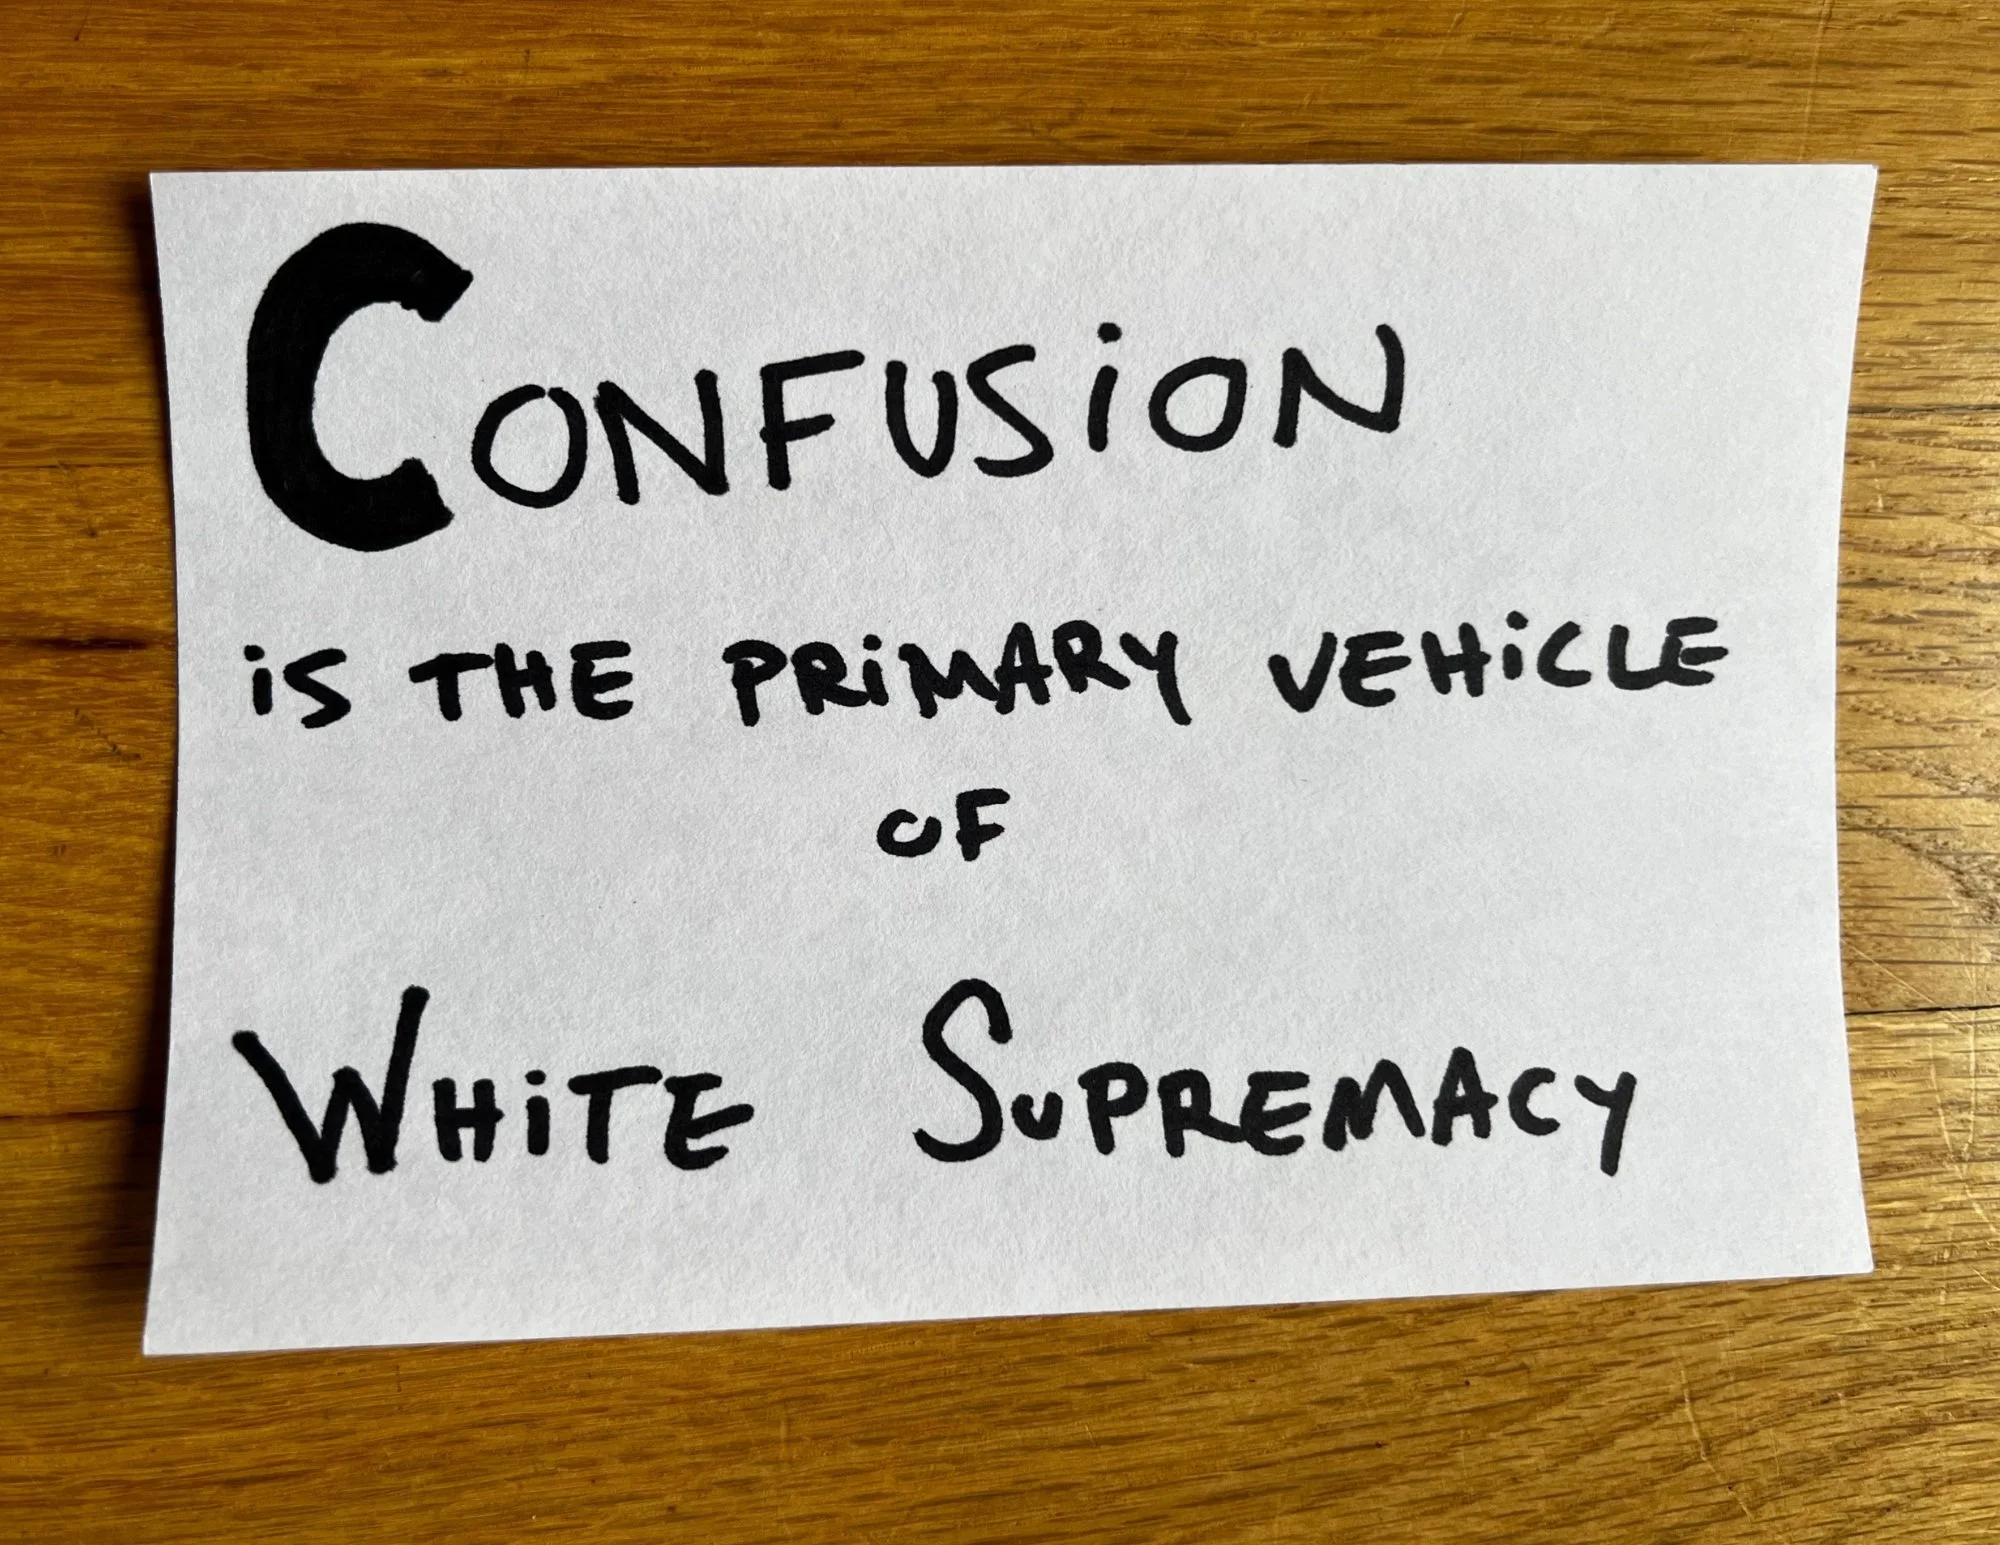 CONFUSiON
iS THE PRiMARY VEHiCLE
OF
WHiTE SUPREMACY